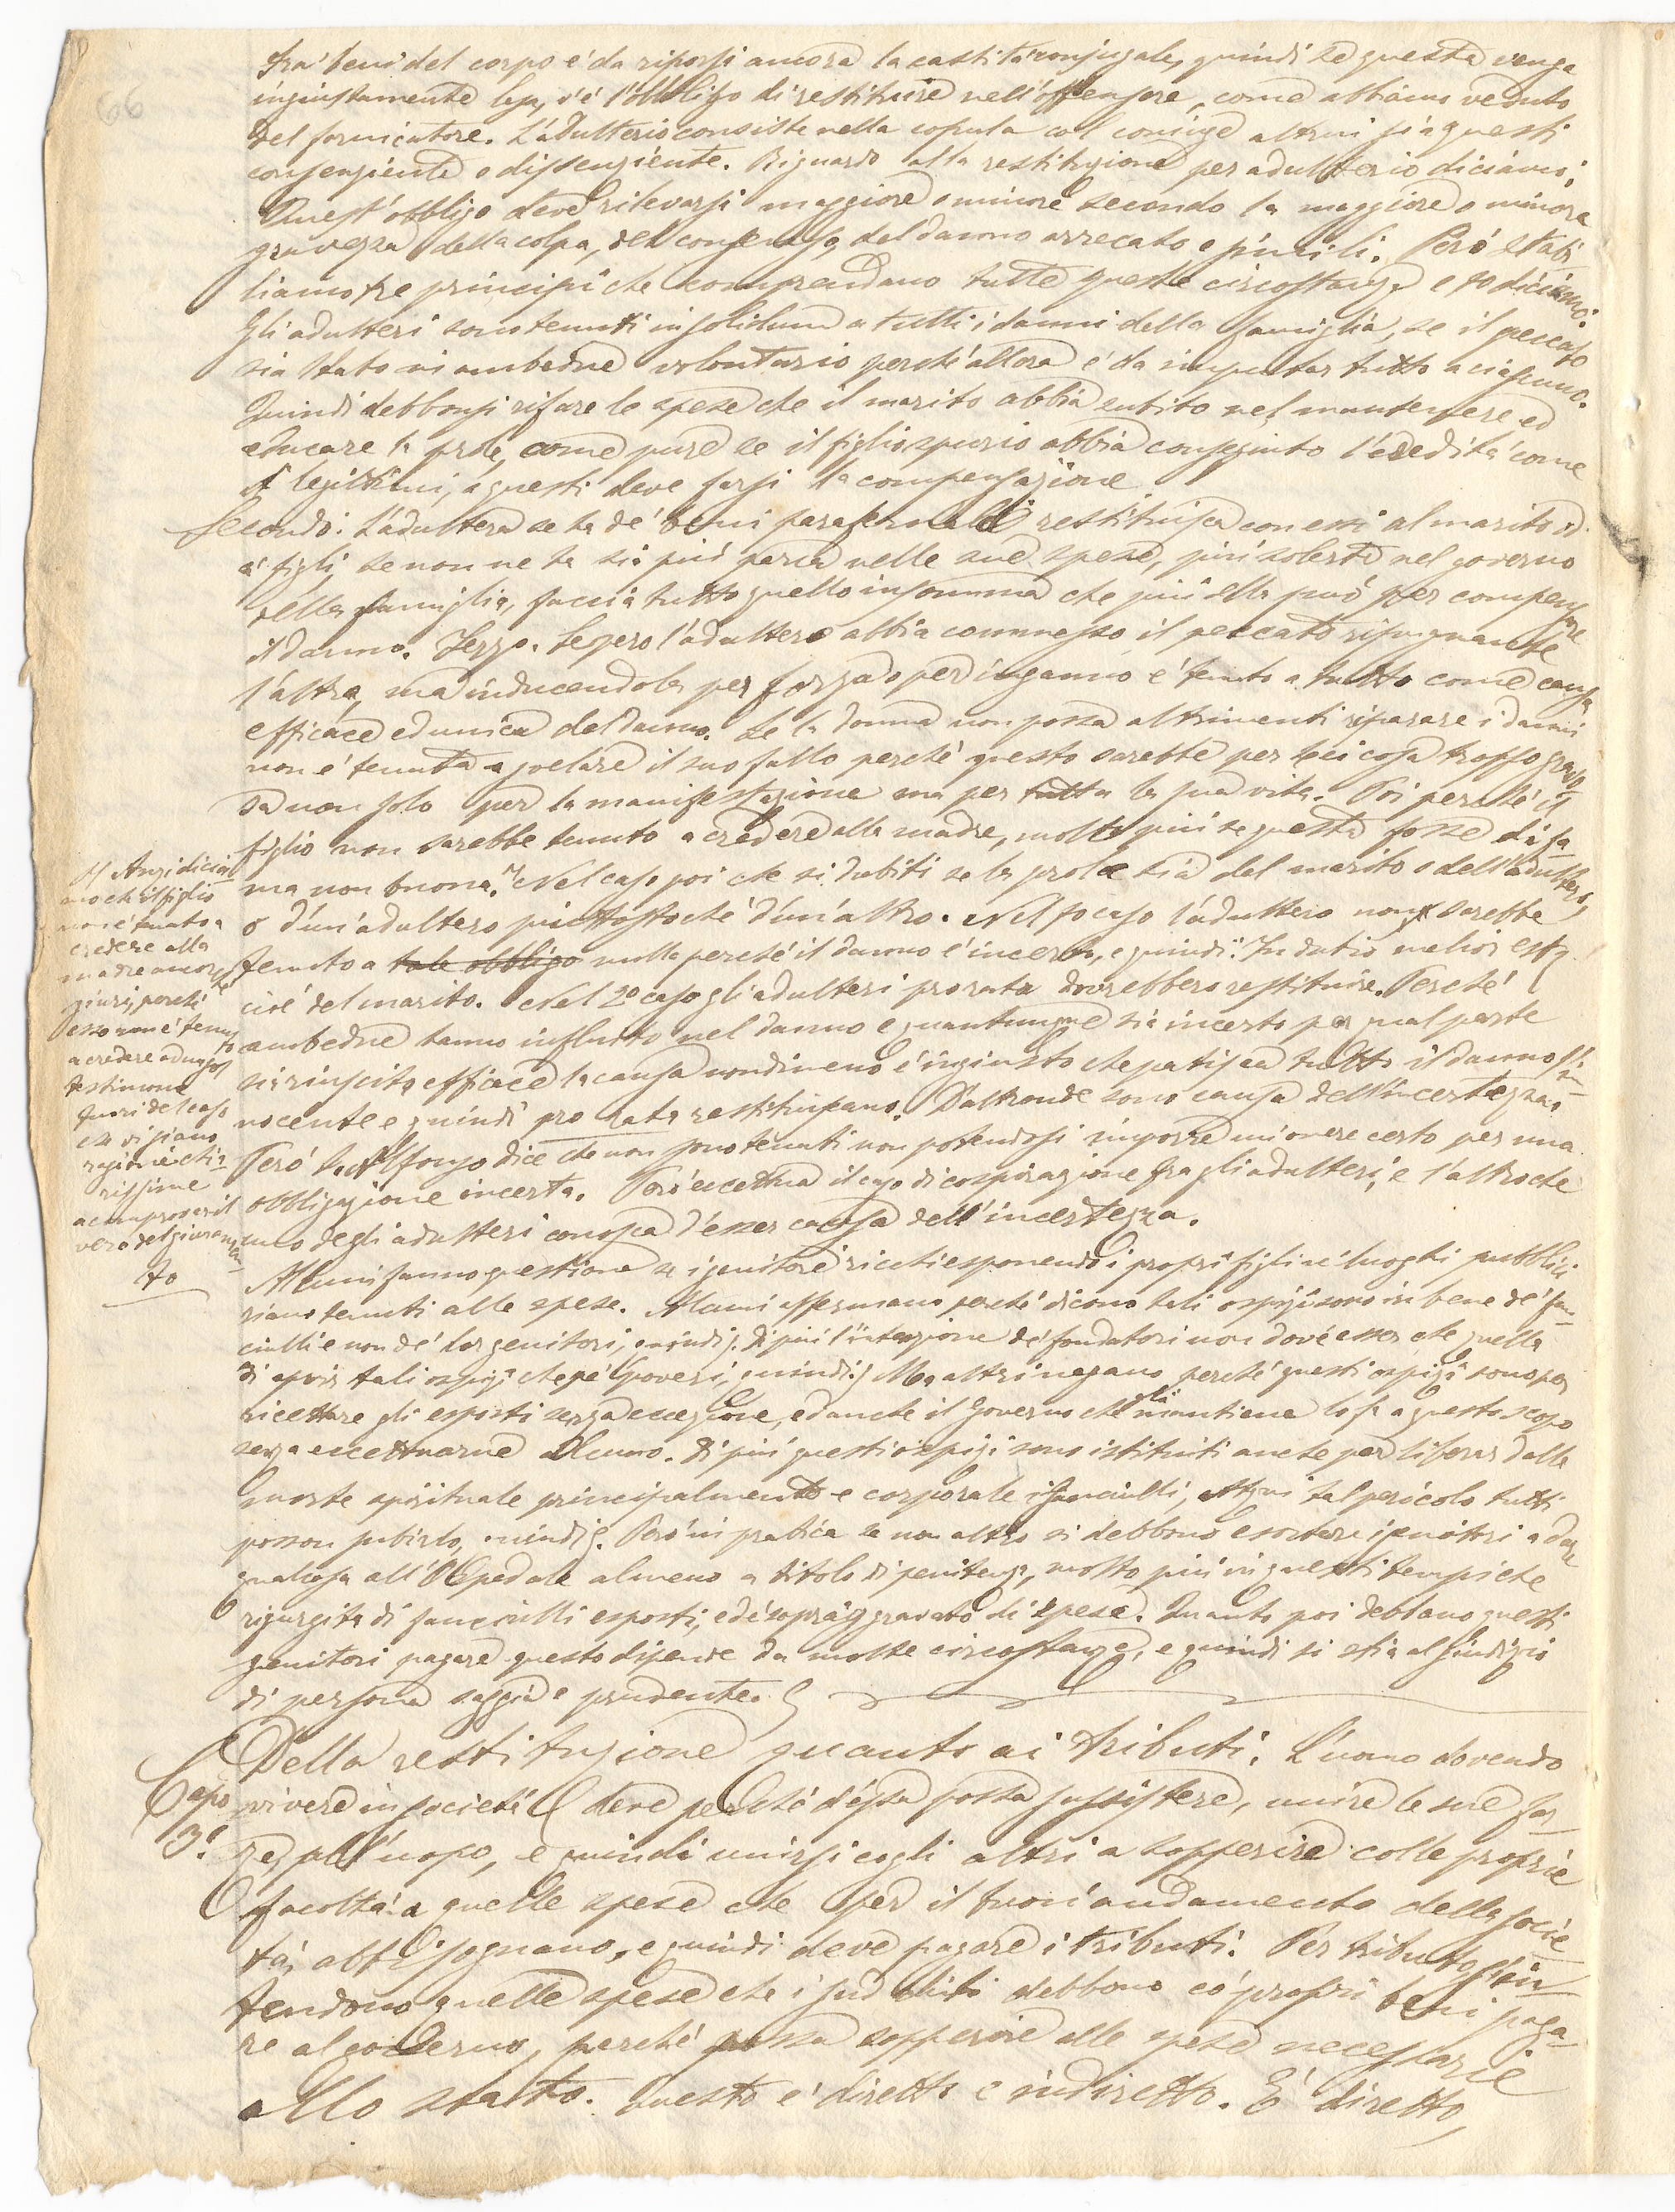 Fra' beni del corpo è da riporsi ancora la castità conjugale, quindi se questa venga
ingiustamente lesa, v'è l'obbligo di restituire nell'offensore, come abbiamo veduto
del fornicatore. L'adulterio consiste nella copula col coniuge altrui sia questi
consenziente o dissenziente. Riguardo alla restituzione per adulterio diciamo:
Quest'obbligo deve rilevarsi maggiore o minore secondo la maggiore o minore
gravezza della colpa, del consenso, del danno arrecato e simili. Però stabi
liamo tre principii che comprendano tutte queste circostanze e 1o diciamo:
Gli adulteri sono tenuti in solidum a tutti i danni della famiglia, se il peccato
sia stato in ambedue volontario perchè allora è da imputar tutto a ciascuno.
Quindi debbonsi rifare le spese che il marito abbia subito nel mantenere ed
educare la prole, come pure se il figlio spurio abbia conseguito l'eredità come
i legittimi, a questi deve farsi la compensazione
Secondo: L'adultera se ha de' beni parafernali restituisca con essi al marito ed
a' figli, se non ne ha sia più parca nelle sue spese, più solerte nel governo
della famiglia, faccia tutto quello insomma che più ella può per compensare
il danno. Terzo. Se però l'adultero abbia commesso il peccato ripugnante
l'altra, ma inducendola per forza o per inganno è tenuto a tutto come causa
efficace ed unica del danno. Se la donna non possa altrimenti riparare i danni
non è tenuta a svelare il suo fallo perchè questo sarebbe per lei cosa troppo gravo
sa non solo per la manifestazione ma per tutta la sua vita. Poi perchè il
figlio non sarebbe tenuto a credere alla madre, molto più se questa fosse di fa
ma non buona. Nel caso poi che si dubiti se la prole sia del marito o dell'adultero,
o d'un'adultero piuttosto chè d'un'altro. Nel 1o caso l'adultero non sarebbe
tenuto a tale obbligo nulla perchè il danno è incerto, e quindi: In dubio melior est
cioè del marito. Nel 2o caso gli adulteri pro rata dovrebbero restituire. Perchè
ambedue hanno influito nel danno e quantunque sia incerto per qual parte
sia riuscita efficace la causa nondimeno è ingiusto che patisca tutto il danno l'in
nocente e quindi pro rata restituiscano. D'altronde sono causa dell'incertezza.
Però S. Alfonso dice che non sono tenuti non potendosi imporre un onere certo per una
obbligazione incerta. Però eccettua il caso di cospirazione fra gli adulteri, e l'altro che
uno degli adulteri conosca d'esser causa dell'incertezza.
// Anzi dicia
mo che il figlio
non è tenuto a
credere alla
madre ancorchè
giuri, perchè
esso non è tenuto
a credere ad un sol
testimone
fuori del caso
che vi siano
ragioni chia
rissime
a comprovare il
vero del giuramen
to
Alcuni fanno questione se i genitori ricchi esponendo i propri figli ne' luoghi pubblici
siano tenuti alle spese. Alcuni affermano perchè dicono tali ospizi sono in bene de' fan
ciulli e non de' lor genitori, quindi. Di più l'intenzione de' fondatori non dovè esser che quella
di aprir tali ospizi che pe' poveri, quindi. Ma altri negano perchè questi ospizi sono per
ricettare gli esposti senza eccezione, ed anche il Governo che li mantiene lo fa a questo scopo
senza eccettuarne alcuno. Di più questi ospizi sono istituiti anche per liberar dalla
morte spirituale principalmente e corporale i fanciulli, tal pericolo tutti
posson subirlo, quindi. Però in pratica se non altro si debbono esortare i genitori a dare
qualcosa all'Ospedale almeno a titolo di penitenza, molto più in questi tempi che
rigurgita di fanciulli esposti, ed è sopraggravato di spese. Quanto poi debbano questi
genitori pagare questo dipende da molte circostanze, e quindi si stia al giudizio
di persona saggia e prudente.
Capo
3o.
Della restituzione quanto ai tributi. L'uomo dovendo
vivere in società deve perchè d'essa possa sussistere, unire le sue for
ze all'uopo, e quindi unirsi cogli altri a sopperire colle proprie
facoltà a quelle spese che per il buon'andamento della socie
tà abbisognano, e quindi deve pagare i tributi. Per tributo s'in
tendono quelle spese che i sudditi debbono co' propri beni paga
re al governo, perchè possa sopperire alle spese necessarie
allo stato. Questo è diretto e indiretto. È diretto,